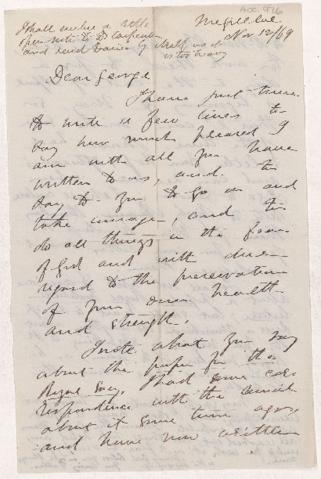 Acc. 976
I shall write a
open note to Dr Carpenter
and send Dawson's by
is too heavy
McGill Col.
Nov 12/69
Dear George
I have just time
to write a few lines to
say how much pleased I
am with all you have
written to us, and to
say to you to go on and
take courage, and to
do all things in the fear
of God and with due
regard to the preservation
of your own health
and strength.
I note what you say
about the paper for the
Royal Socy. I had some cor
respondence with the
about it some time ago,
and have now written